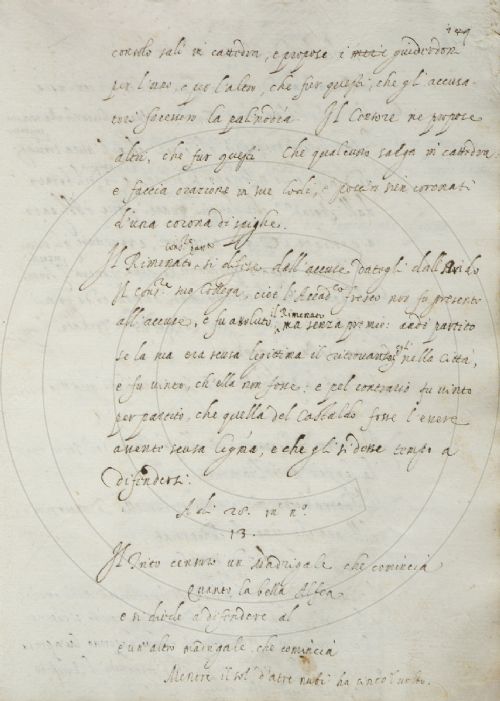 149
consolo salì in cattedra, e propose i guiderdon
per l'uno, e per l'altro, che fur questi, che gl'accusa-
tori facessero la palinodia Il Censore ne propose
altri, che fur questi Che qualcuno salga in cattedra
e faccia orazione in sue lodi, e poscia sien coronati
d'una corona di spighe.
Il Rimenato, si difese dall'accuse dategli dall'Arido
Il Cons.re suo Collega, cioè l'Accad.co fresco non fu presente
all'accuse, e fu assoluto il Rimenato ma senza premio: andò partito
se la sua era scusa legittima il ritrovandosi nella Città,
e fu vinto, ch'ella non fosse: e pel contrario fu vinto
per partito, che quella del Castaldo fosse l'avere
avuto scusa legit.ma, e che gli si desse tempo a
difendersi.
A dì 28. in n.o
13.
Il censurò un Madrigale che comincia
Quanto la bella Alfea
e si diede a difendere al
e un'altro madrigale che comincia
Mentre il sol d'atre nubi ha cinto il volto.